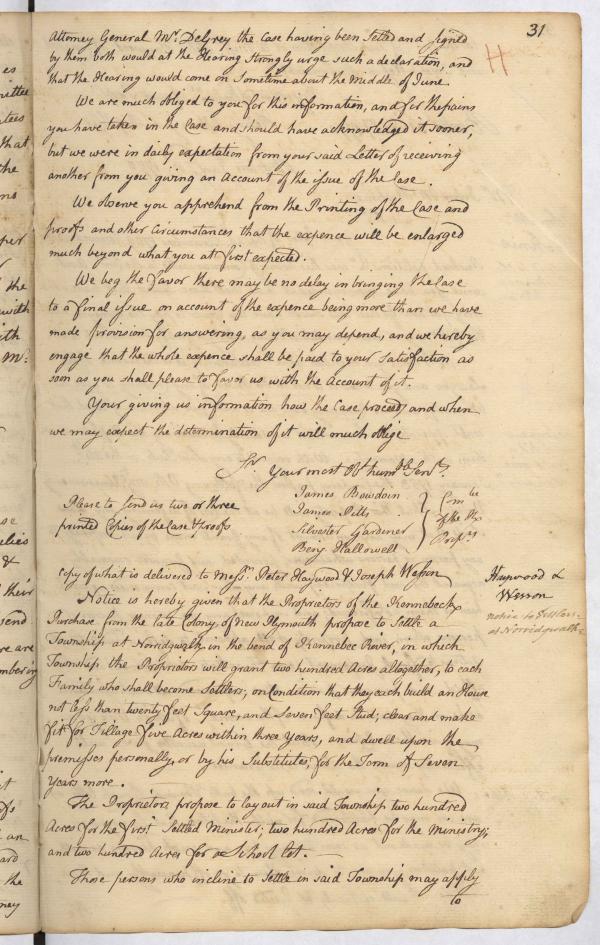 31
H
Attorney General Mr. DeGrey the Case having been Settled and Signed
by them both would at the Hearing Strongly urge such a declaration, and
that the Hearing would come on Sometime about the Middle of June.
We are much obliged to you for this information, and for the pains
you have taken in the Case and should have acknowledged it sooner,
but we were in daily expectation from your said Letter of receiving
another from you giving an Account of the issue of the Case.
We observe you apprehend from the Printing of the Case and
proofs and other Circumstances that the expence will be enlarged
much beyond what you at first expected.
We beg the favor there may be no delay in bringing the Case
to a final issue on account of the expence being more than we have
made provision for answering, as you may depend, and we hereby
engage that the whole expence shall be paid to your Satisfaction as
soon as you shall please to favor us with the Account of it.
Your giving us information how the Case proceeds and when
we may expect the determination of it will much oblige
Sr. Your most Obt. humble Servts.
Please to send us two or three
printed Copies of the Case & proofs
James Bowdoin
James Pitts
Silvester Gardiner
Benj Hallowell
Comtee
of the Kx
Proprs.
Copy of what is delivered to Messrs. Peter Haywood & Joseph Wesson
Haywood &
Wesson
notice to Settlers
at Norridgwalk
Notice is hereby given that the Proprietors of the Kennebeck
Purchase from the late Colony of New Plymouth propose to Settle a
Township at Norridgwalk in the bend of Kennebec River, in which
Township the Proprietors will grant two hundred Acres altogether, to each
Family who shall become Settlers; on Condition that they each build an House
not less than twenty feet Square, and Seven feet Stud; clear and make
fit for Tillage five Acres within three Years, and dwell upon the
premisses personally, or by his Substitutes, for the Term of Seven
Years more.
The Proprietors propose to lay out in said Township two hundred
Acres for the first Settled Minister; two hundred Acres for the Ministry;
and two hundred Acres for a School lot.
Those persons who incline to Settle in said Township may apply
to